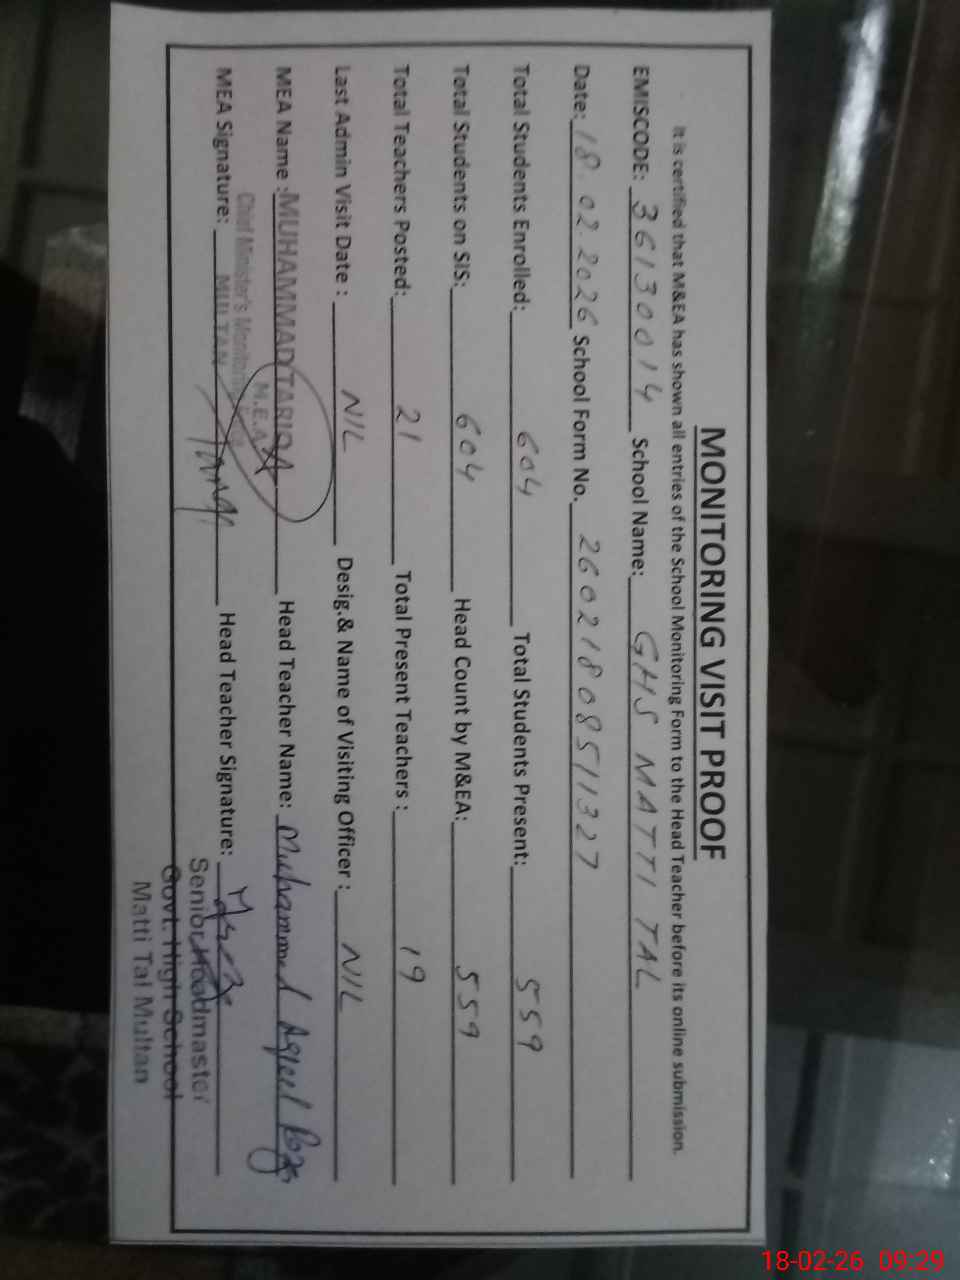 MONITORING VISIT PROOF
It is certified that M&EA has shown all entries of the School Monitoring Form to the Head Teacher before its online submission.
EMISCODE: 36130014 School Name: GHS MATTI TAL
Date: 18.02.2026 School Form No. 26021808511327
Total Students Enrolled: 604 Total Students Present: 559
Total Students on SIS: 604 Head Count by M&EA: 559
Total Teachers Posted: 21 Total Present Teachers : 19
Last Admin Visit Date : NIL Desig.& Name of Visiting Officer : NIL
MEA Name : MUHAMMAD TARIQ Head Teacher Name: Muhammad Aqeel
M.E.A
Chief Minister's
MEA Signature: MULTAN Head Teacher Signature:
Senior Headmaster
Govt. High School
Matti Tal Multan
18-02-26 09:29